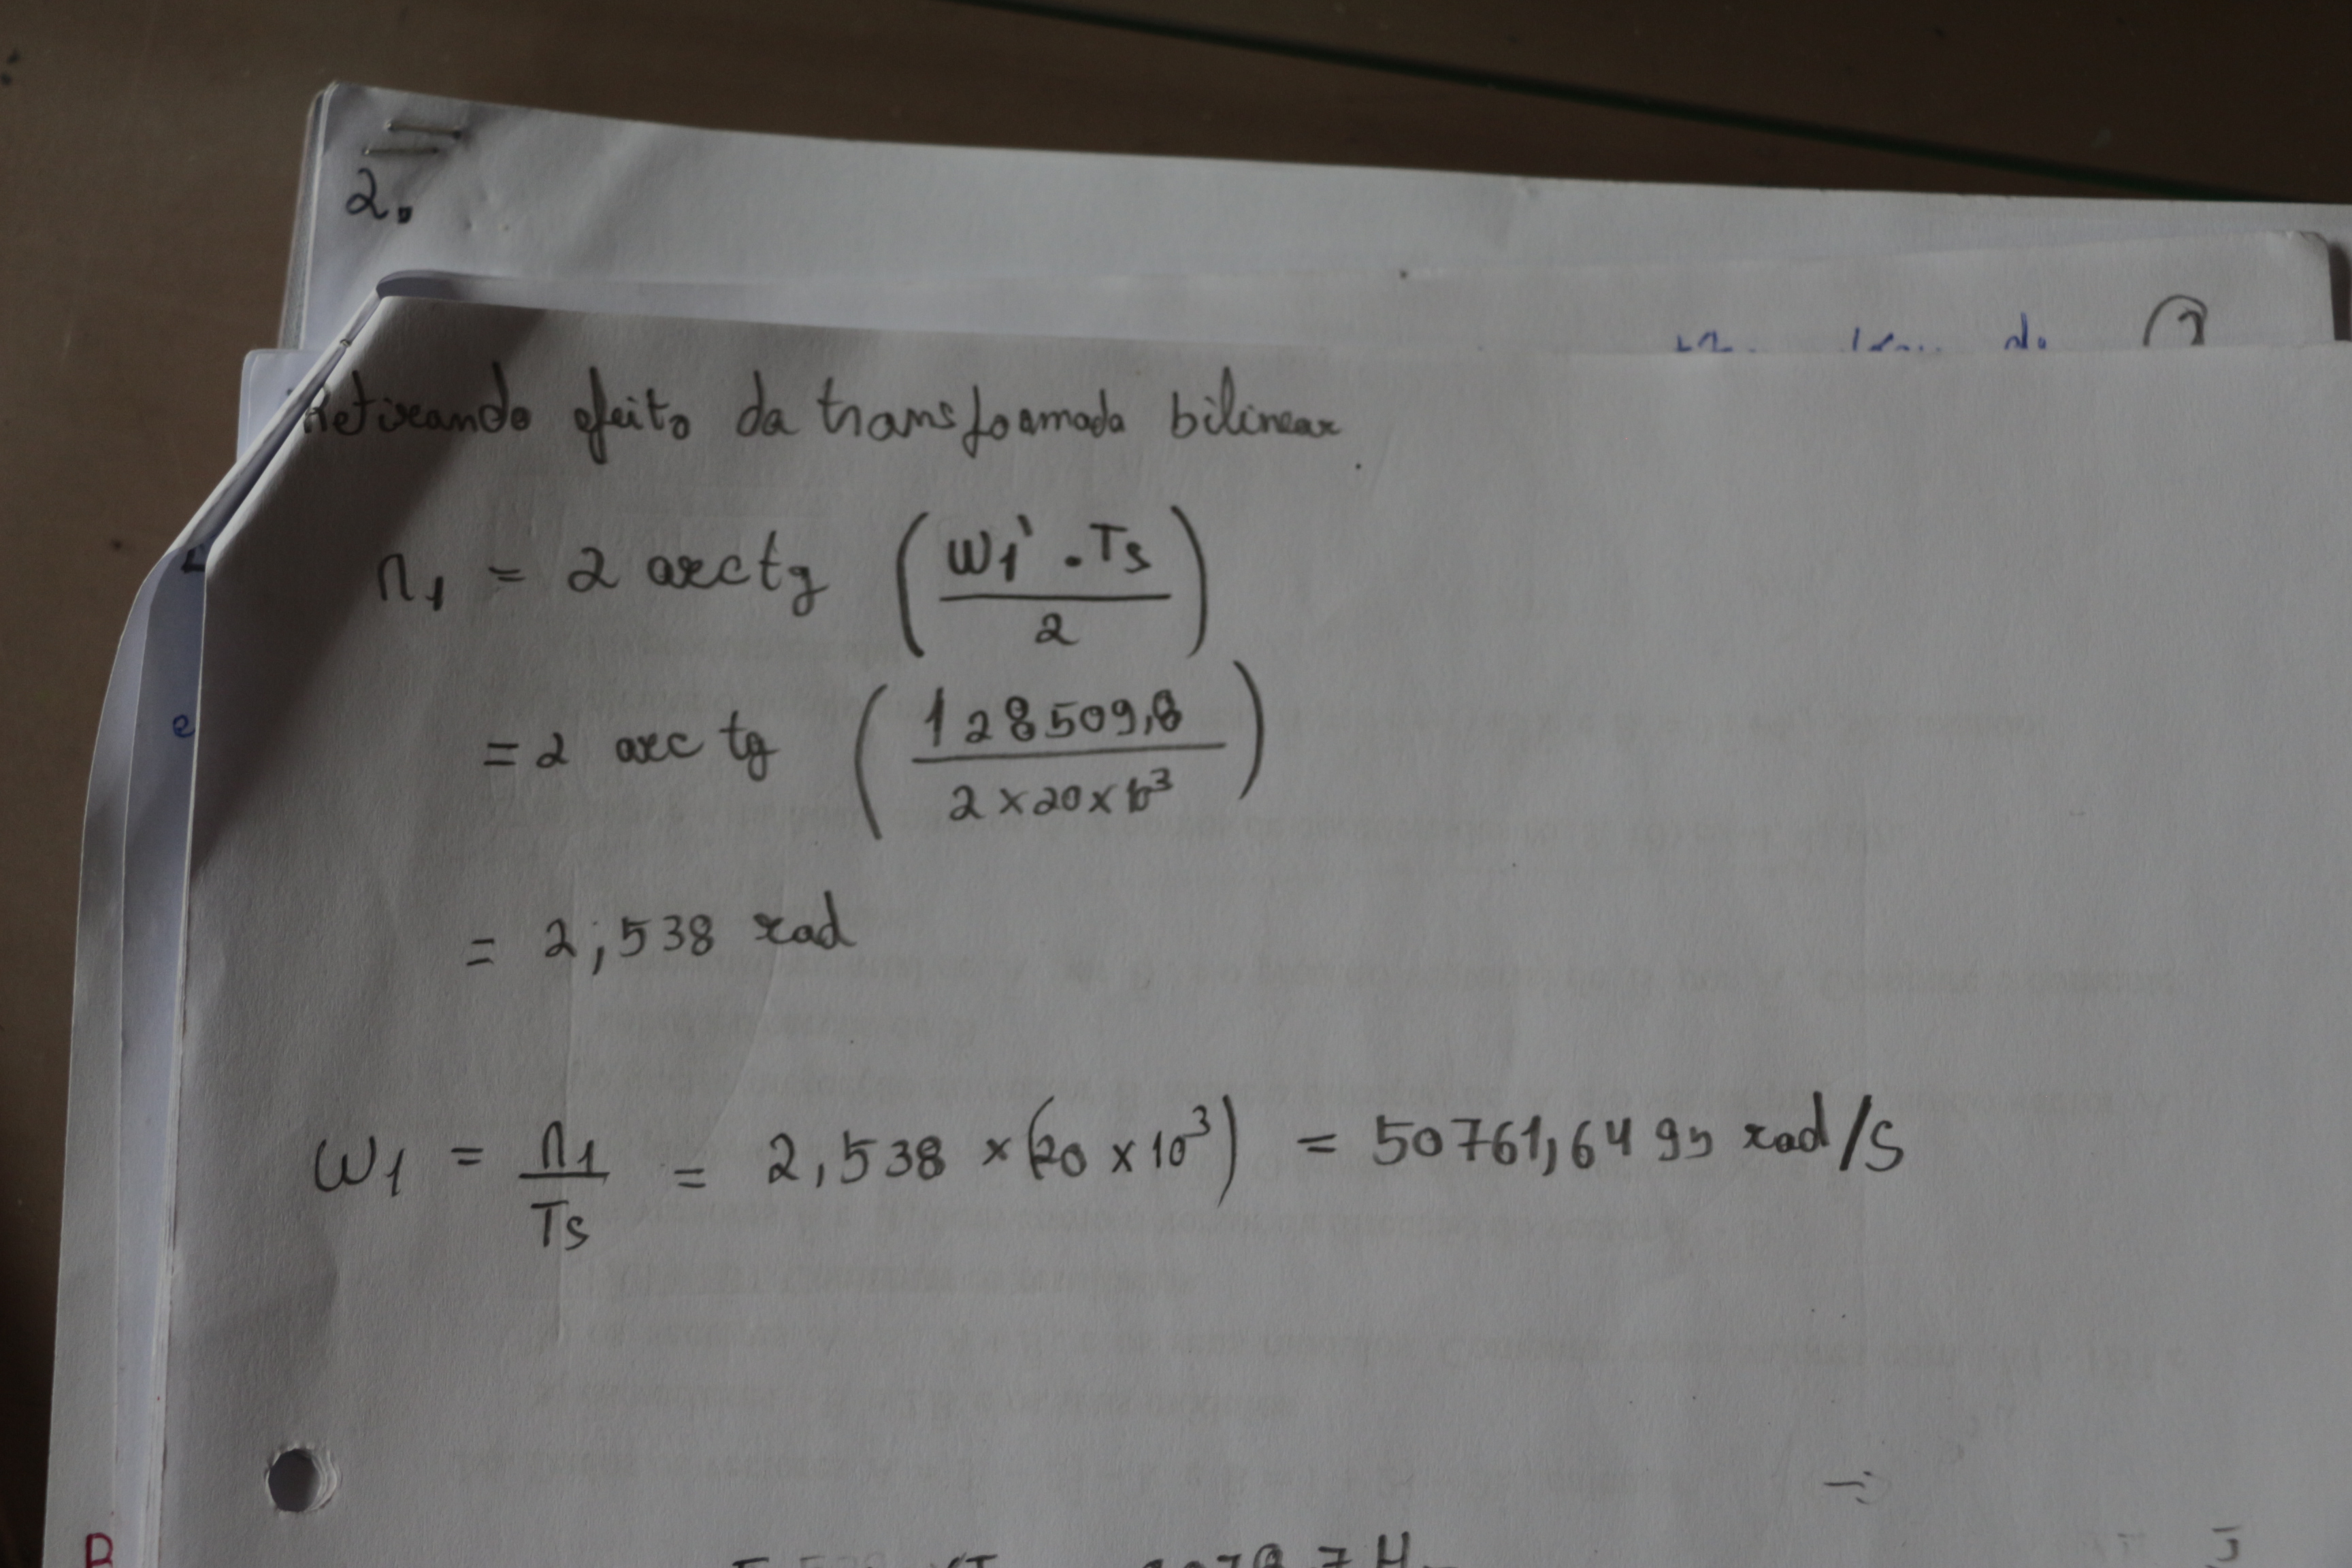 2.
Retirando efeito da transformada bilinear
Ω1 = 2 arctg ( w1' . Ts / 2 )
= 2 arc tg ( 128509,8 / 2 × 20 × 10³ )
= 2,538 rad
ω1 = Ω1 / Ts = 2,538 × (20 × 10³) = 50761,6495 rad/s
e
B